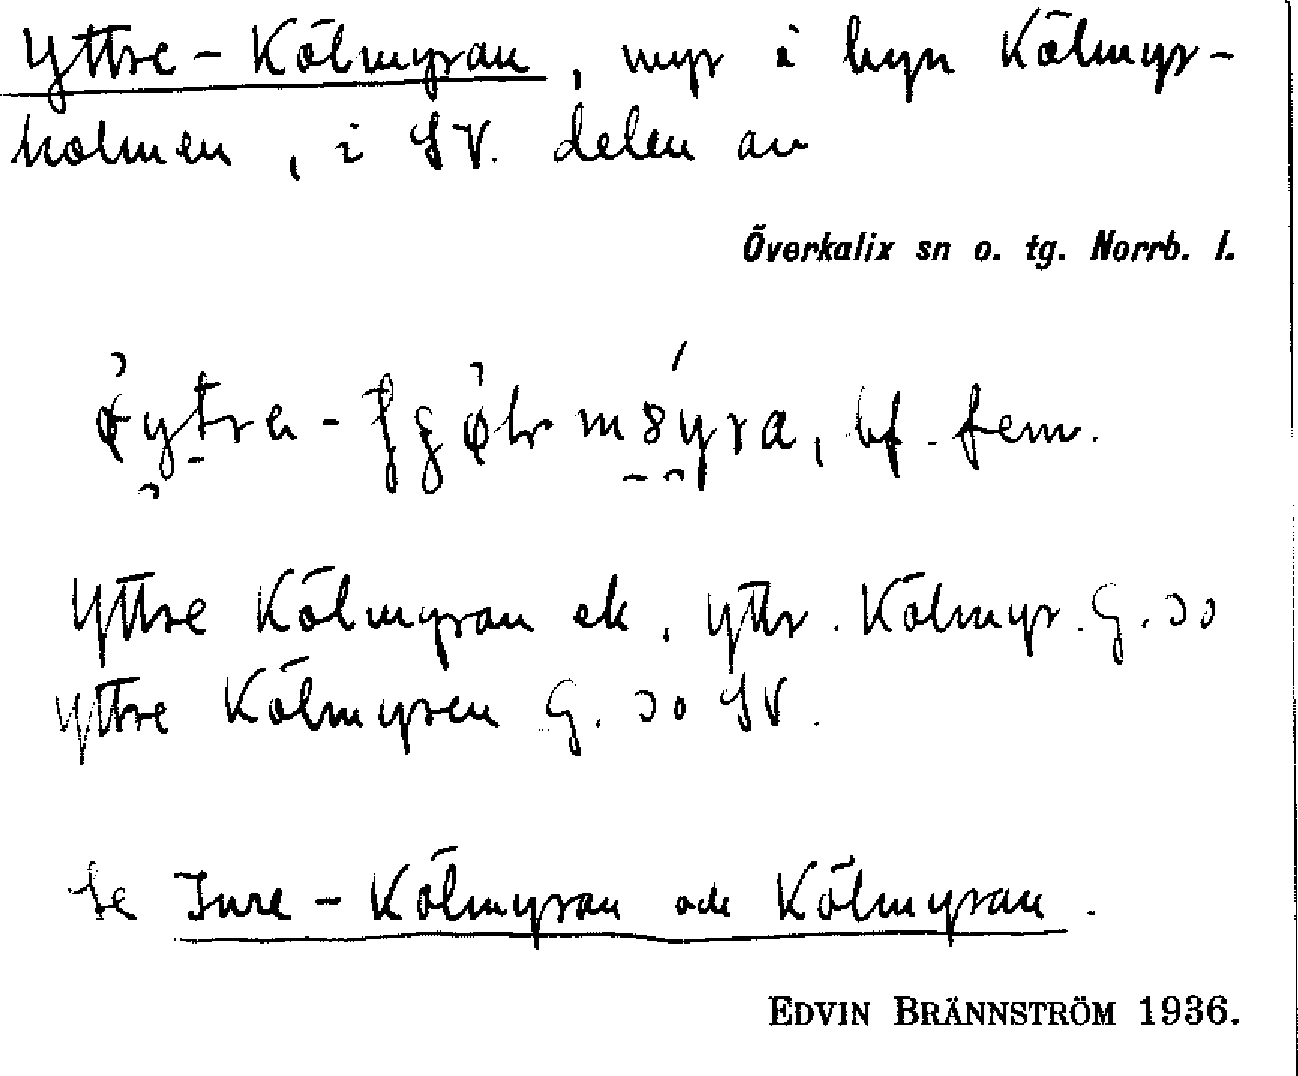 Yttre-Kölmyran, myr i byn Kölmyr-
holmen, i SV. delen av
Överkalix sn o. tg. Norrb. l.
bf. fem.
Yttre Kölmyran ek, yttr. Kölmyr. G. 30
yttre Kölmyren G. 30 SV.
Se Inre-Kölmyran och Kölmyran.
EDVIN BRÄNNSTRÖM 1936.